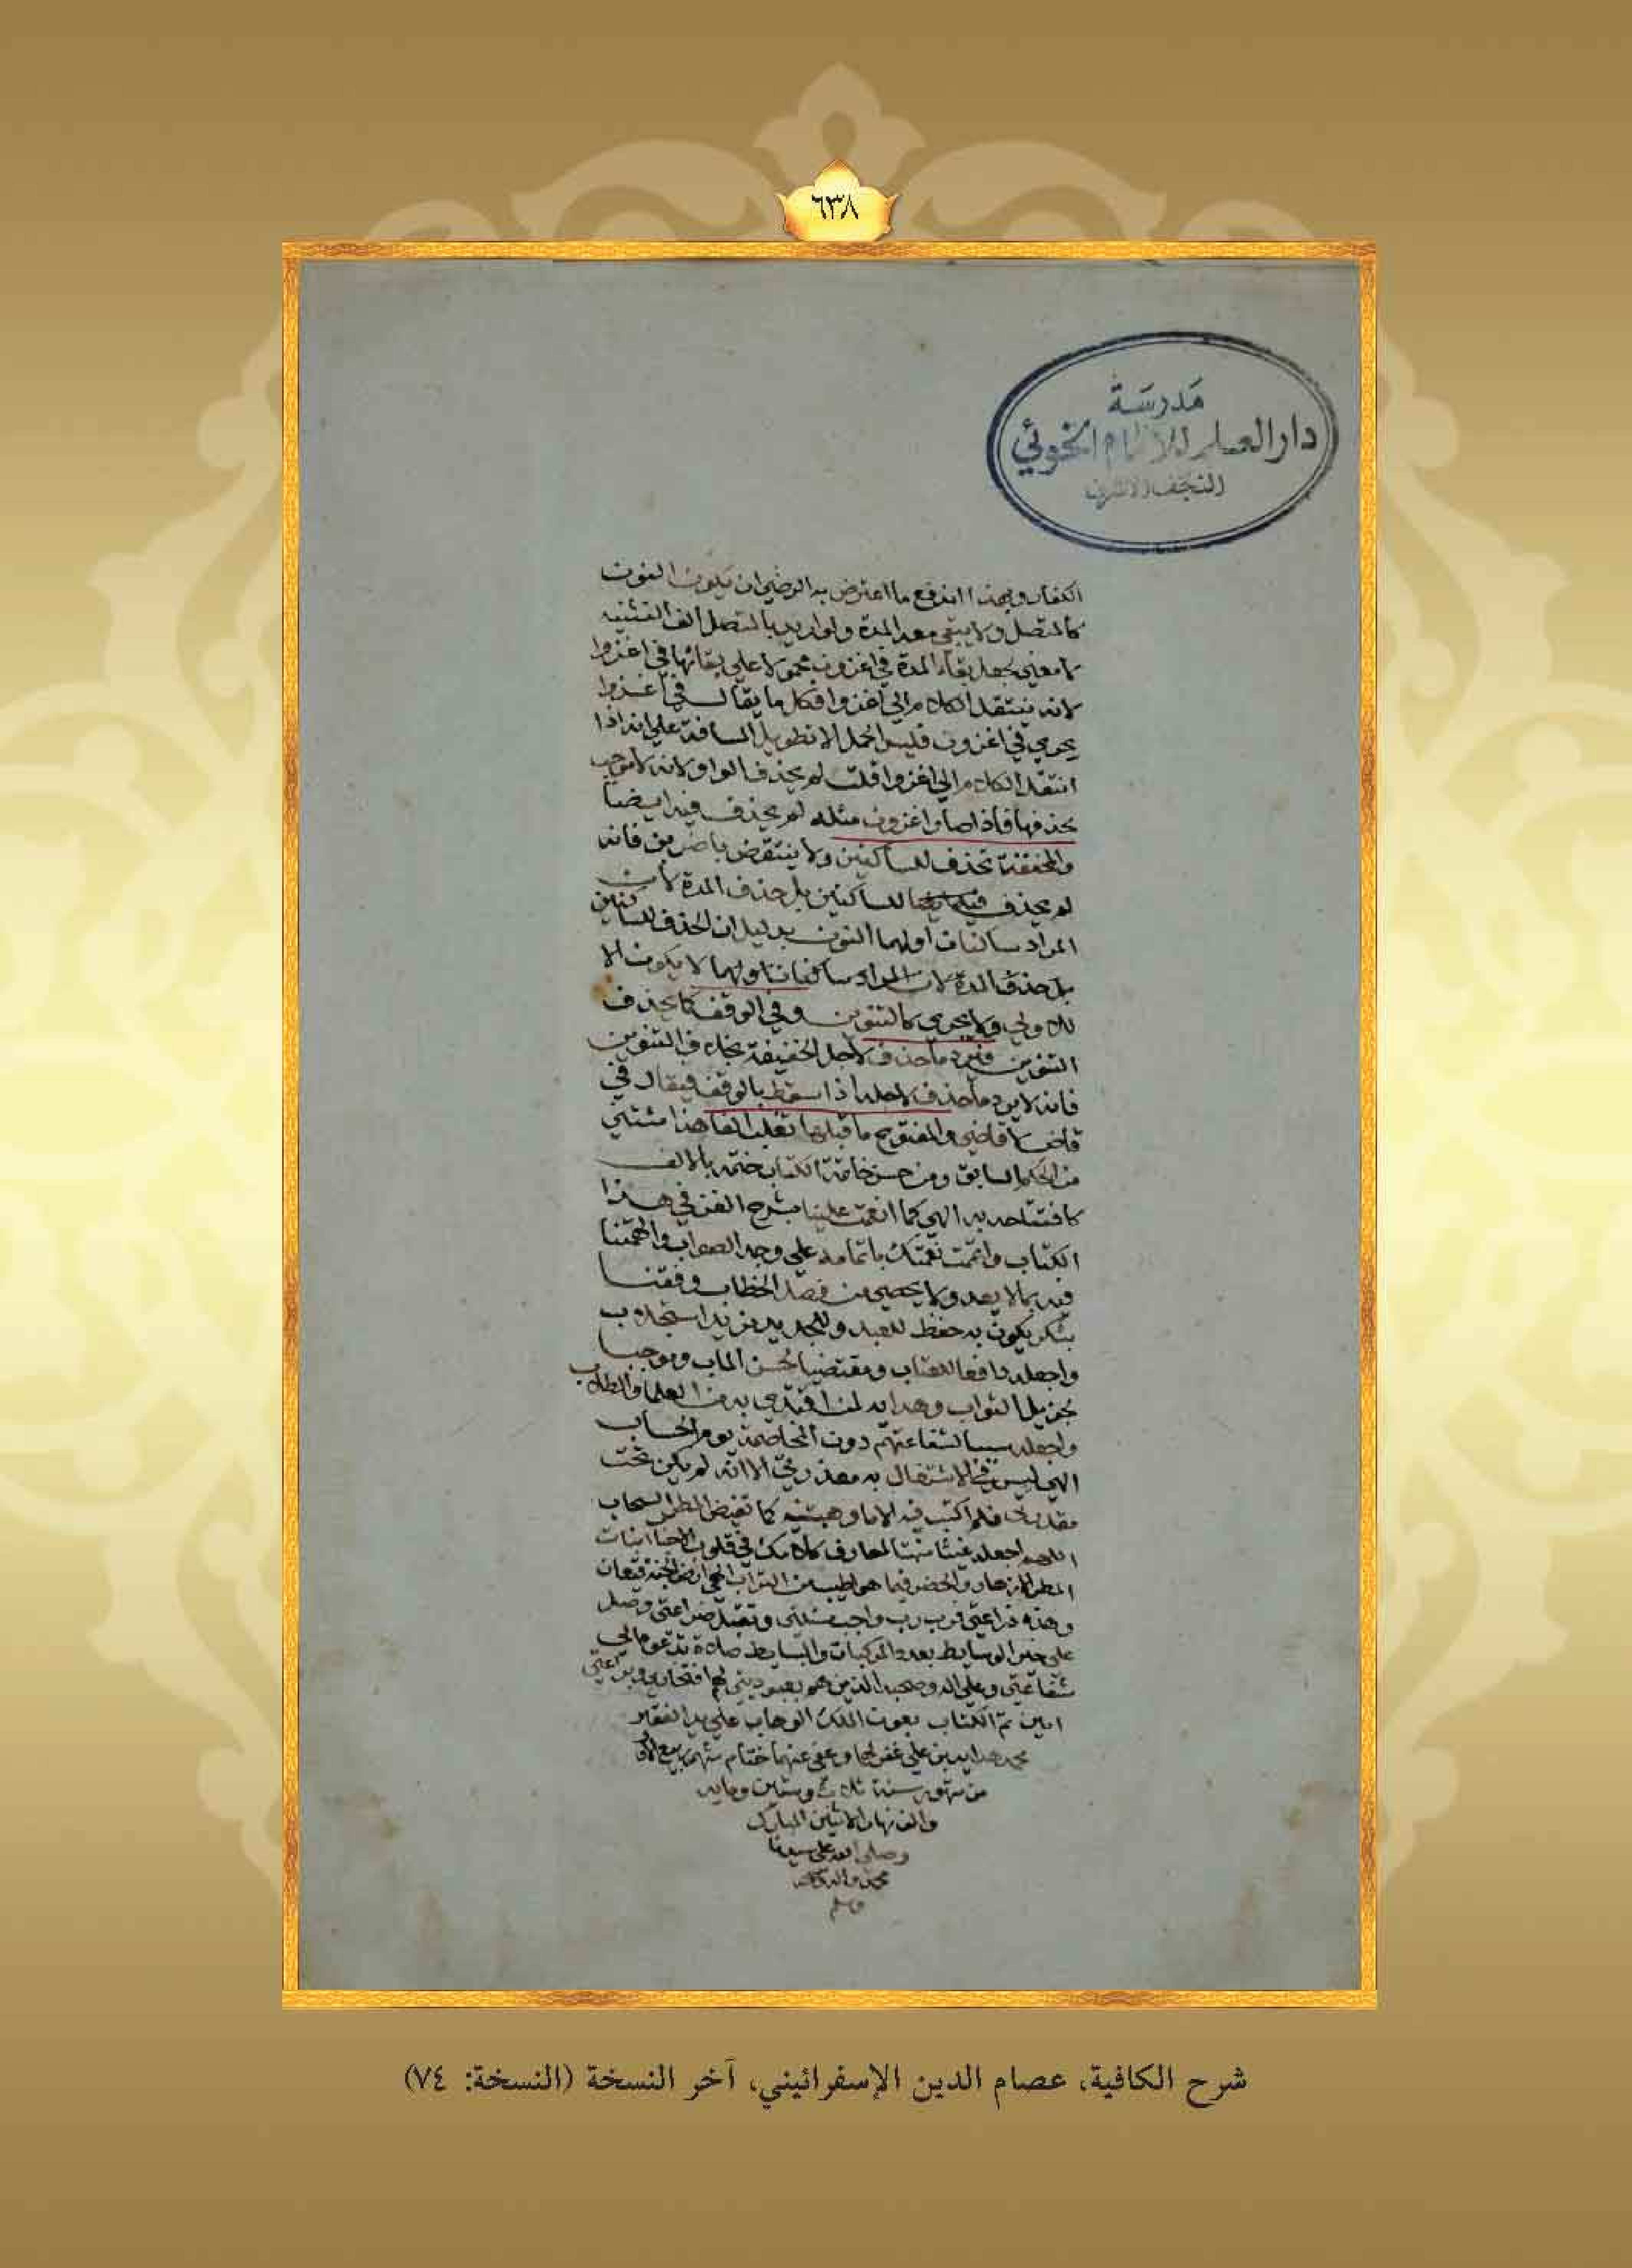 ٦٣٨
مَدرسَة
دار العلم للإمام الخوئي
النجف الاشرف
الكفار وبهذا اندفع ما اعترض به الرضي ان يكون النون
كالمتصل ولا يبقى معه المدة ولو اريد بالمتصل الف التثنية
لا معنى لجعل بقاء المدة في اغزون محمولا على بقائها في اغزوا
لانه ينتقل الكلام الى اغزوا فكل ما يقال في اغزوا
يجري في اغزون فليس الحمل الا تطويل المسافة على انه اذا
انتقل الكلام الى اغزوا قلت لم يحذف الواو لانه لا موجب
بحذفها فاذا صار اغزون مثله لم يحذف فيه ايضا
والمخففة تحذف للساكنين ولا ينتقض باضربن فانه
لم يحذف للساكنين بل حذف المدة لان
المراد ساكنان اولهما النون بدليل ان الحذف للساكنين
بل حذف المدة لان المراد ساكنان اولهما لا يكون الا
للاولى ولا يجري كالتنوين وفي الوقف كما يحذف
التنوين فيرد ما حذف لاجل الخفيفة بخلاف التنوين
فانه لا يرد ما حذف لاجله اذا سقط بالوقف فيقال في
قاض لا قاضي والمفتوح ما قبلها تقلب الفا هذا مستثنى
من الحكم السابق ومن حسن خاتمة الكتاب ختمه بالالف
كافتتاحه به الهي كما انعمت علينا بشرح الفن في هذا
الكتاب واتممت نعمتك باتمامه على وجه الصواب والهمتنا
فيه بما لا يعد ولا يحصى من فصل الخطاب وفقنا
بشكر يكون به حفظ للعبد وللجديد مزيد استجلاب
واجعله دافعا للعقاب ومقتضيا لحسن الماب وموجبا
لجزيل الثواب وهداية لمن اقتدى به من العلماء والطلاب
واجعله سببا لشفاعتهم دون المخاصمة يوم الحساب
الهي ليس في الاشتغال به معذرتي الا انه لم يكن تحت
مقدرتي فلم اكتب فيه الا ما وهبتنيه كما تفيض المطر السحاب
اللهم اجعله غيثا منبتا لمعارف كلامك في قلوب الاحبا انبات
المطر الازهار والخضر فيما هو اطيب من التراب الهي ارض الجنة قيعان
وهذه زراعتي فرب رب واجب مسئلتي وتقبل ضراعتي وصل
على خير الوسايط بعدد المركبات والبسايط صلاة تدعوه الى
شفاعتي وعلى اله وصحبه الذين هم بعبوديتي لهم افتخاري وبراعتي
امين تم الكتاب بعون الملك الوهاب على يد الفقير
محمد هداية بن علي غفر لهما وعفى عنهما ختام شهر ربيع الاول
من شهور سنة ثلاث وستين ومايه
والف نهار الاثنين المبارك
وصلى الله على سيدنا
محمد واله وصحبه
وسلم
شرح الكافية، عصام الدين الإسفرائيني، آخر النسخة (النسخة: ٧٤)